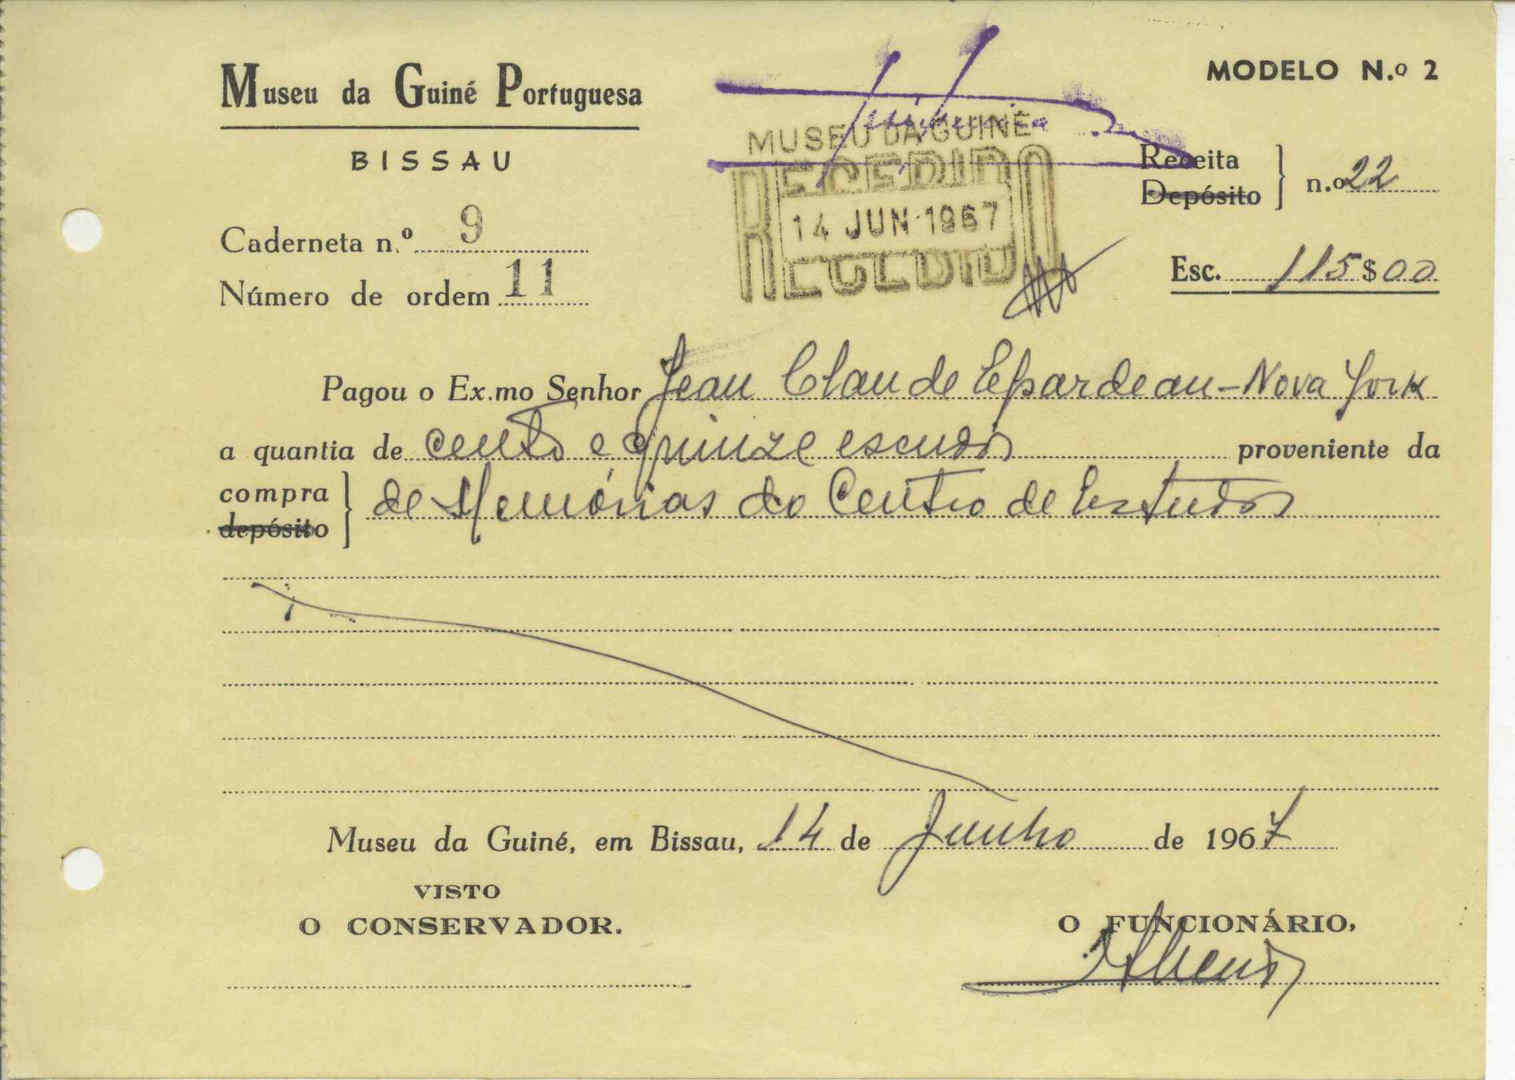 Museu da Guiné Portuguesa
BISSAU
MODELO N.º 2
MUSEU DA GUINÉ
RECEBIDO
14 JUN 1967
RECEBIDO
Receita
Depósito
n.º 22
Caderneta n.º 9
Número de ordem 11
Esc. 115$00
Pagou o Ex.mo Senhor Jean Claude Epardeau - Nova York
a quantia de cento e quinze escudos proveniente da
compra
depósito
de Memórias do Centro de Estudos
Museu da Guiné, em Bissau, 14 de Junho de 1967
VISTO
O CONSERVADOR.
O FUNCIONÁRIO,